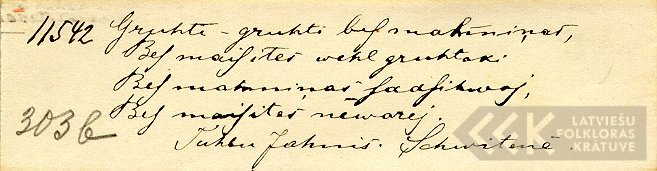 11542 Gruhte - gruhti bes mahmiņas,
Bes maisites wehl gruhtaki
Bes mahmiņas sadsihwoj,
303b Bes maisites newarej.
Jahnis. Schwitenē.
LATVIEŠU
FOLKLORAS
KRĀTUVE